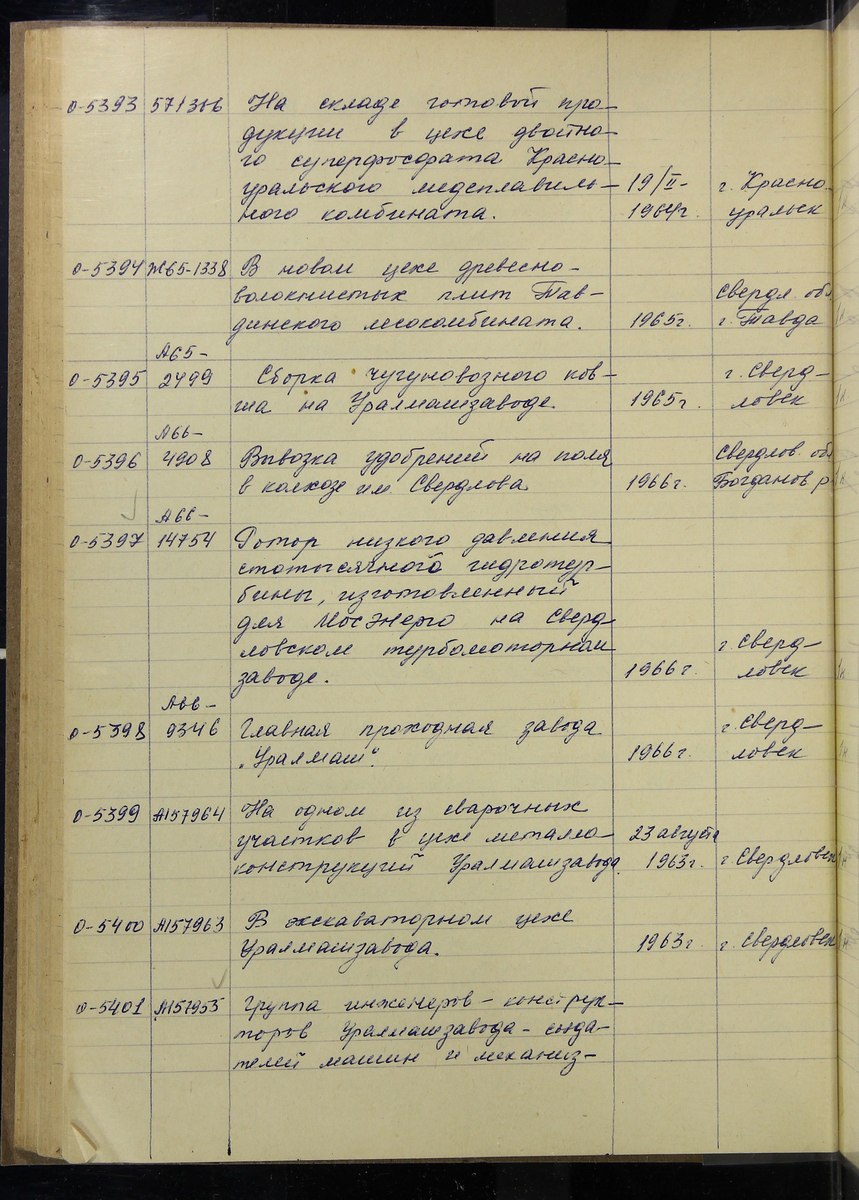 О-5393 571306 На складе готовой про-
дукции в цехе двойно-
го суперфосфата Красно-
уральского медеплавиль- 19/II- г. Красно-
ного комбината. 1964г. уральск
О-5394 Ж65-1338 В новом цехе древесно-
волокнистых плит Тав- Свердл. обл
динского лесокомбината. 1965г. г. Тавда
А65-
О-5395 2499 Сборка чугуновозного ков- г. Сверд-
ша на Уралмашзаводе. 1965г. ловск
А66-
О-5396 4908 Вывозка удобрений на поля Свердлов. обл
в колхозе им. Свердлова. 1966г. Богданов р
А66-
О-5397 14754 Ротор низкого давления
стотысячного гидротур-
бины, изготовленный
для МосЭнерго на Сверд-
ловском турбомоторном г. Сверд-
заводе. 1966г. ловск
А66-
О-5398 9346 Главная проходная завода г. Сверд-
„Уралмаш". 1966г. ловск
О-5399 А157964 На одном из сварочных
участков в цехе металло- 23 августа
конструкций Уралмашзавода. 1963г. г. Свердловск
О-5400 А157963 В экскаваторном цехе
Уралмашзавода. 1963г. г. Свердловск
О-5401 А157955 Группа инженеров-конструк-
торов Уралмашзавода - созда-
телей машин и механиз-